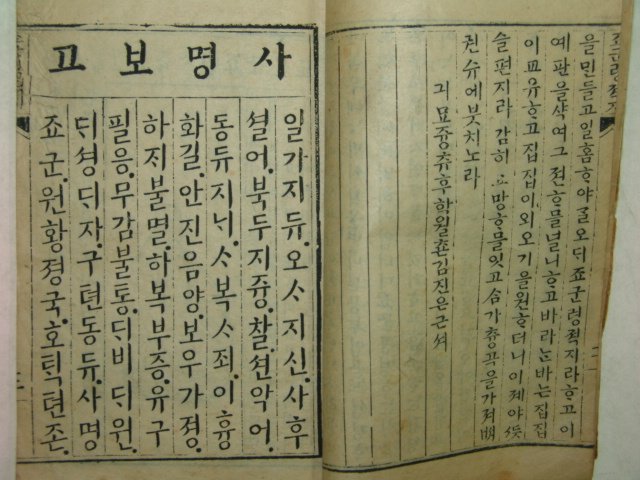 을민들고일홈ᄒᆞ야ᄀᆞᆯ오ᄃᆡ죠군령젹지라ᄒᆞ고이
예판을샥여그젼ᄒᆞ믈널니ᄒᆞ고바라ᄂᆞᆫ바ᄂᆞᆫ집집
이교유ᄒᆞ고집집이외오기을원ᄒᆞ더니이졔야
슬편지라감히망ᄒᆞ믈잇고ᄉᆞᆷ가츙곡을가져ᄡᅥ
권슈에붓치노라
긔묘즁츄후학월촌김진은근셔
사명보고
일가지듀.오ᄉᆞ지신.사후
셜어.북두지즁.찰션악어.
동듀지ᄂᆡ.ᄉᆞ복ᄉᆞ죄.이흉
화길.안진음양.보우가졍.
하ᄌᆡ불멸.하복부증.유구
필응.무감불통.ᄃᆡ비ᄃᆡ원.
ᄃᆡ셩ᄃᆡ자.구텬동듀.사명
죠군.원황졍국.호ᄐᆡᆨ텬존.